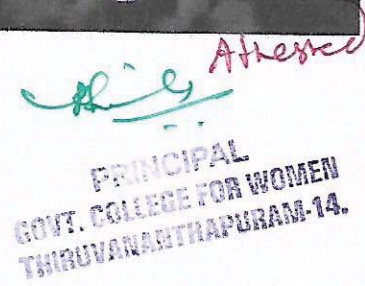 Attested
PRINCIPAL
GOVT. COLLEGE FOR WOMEN
THIRUVANANTHAPURAM-14.